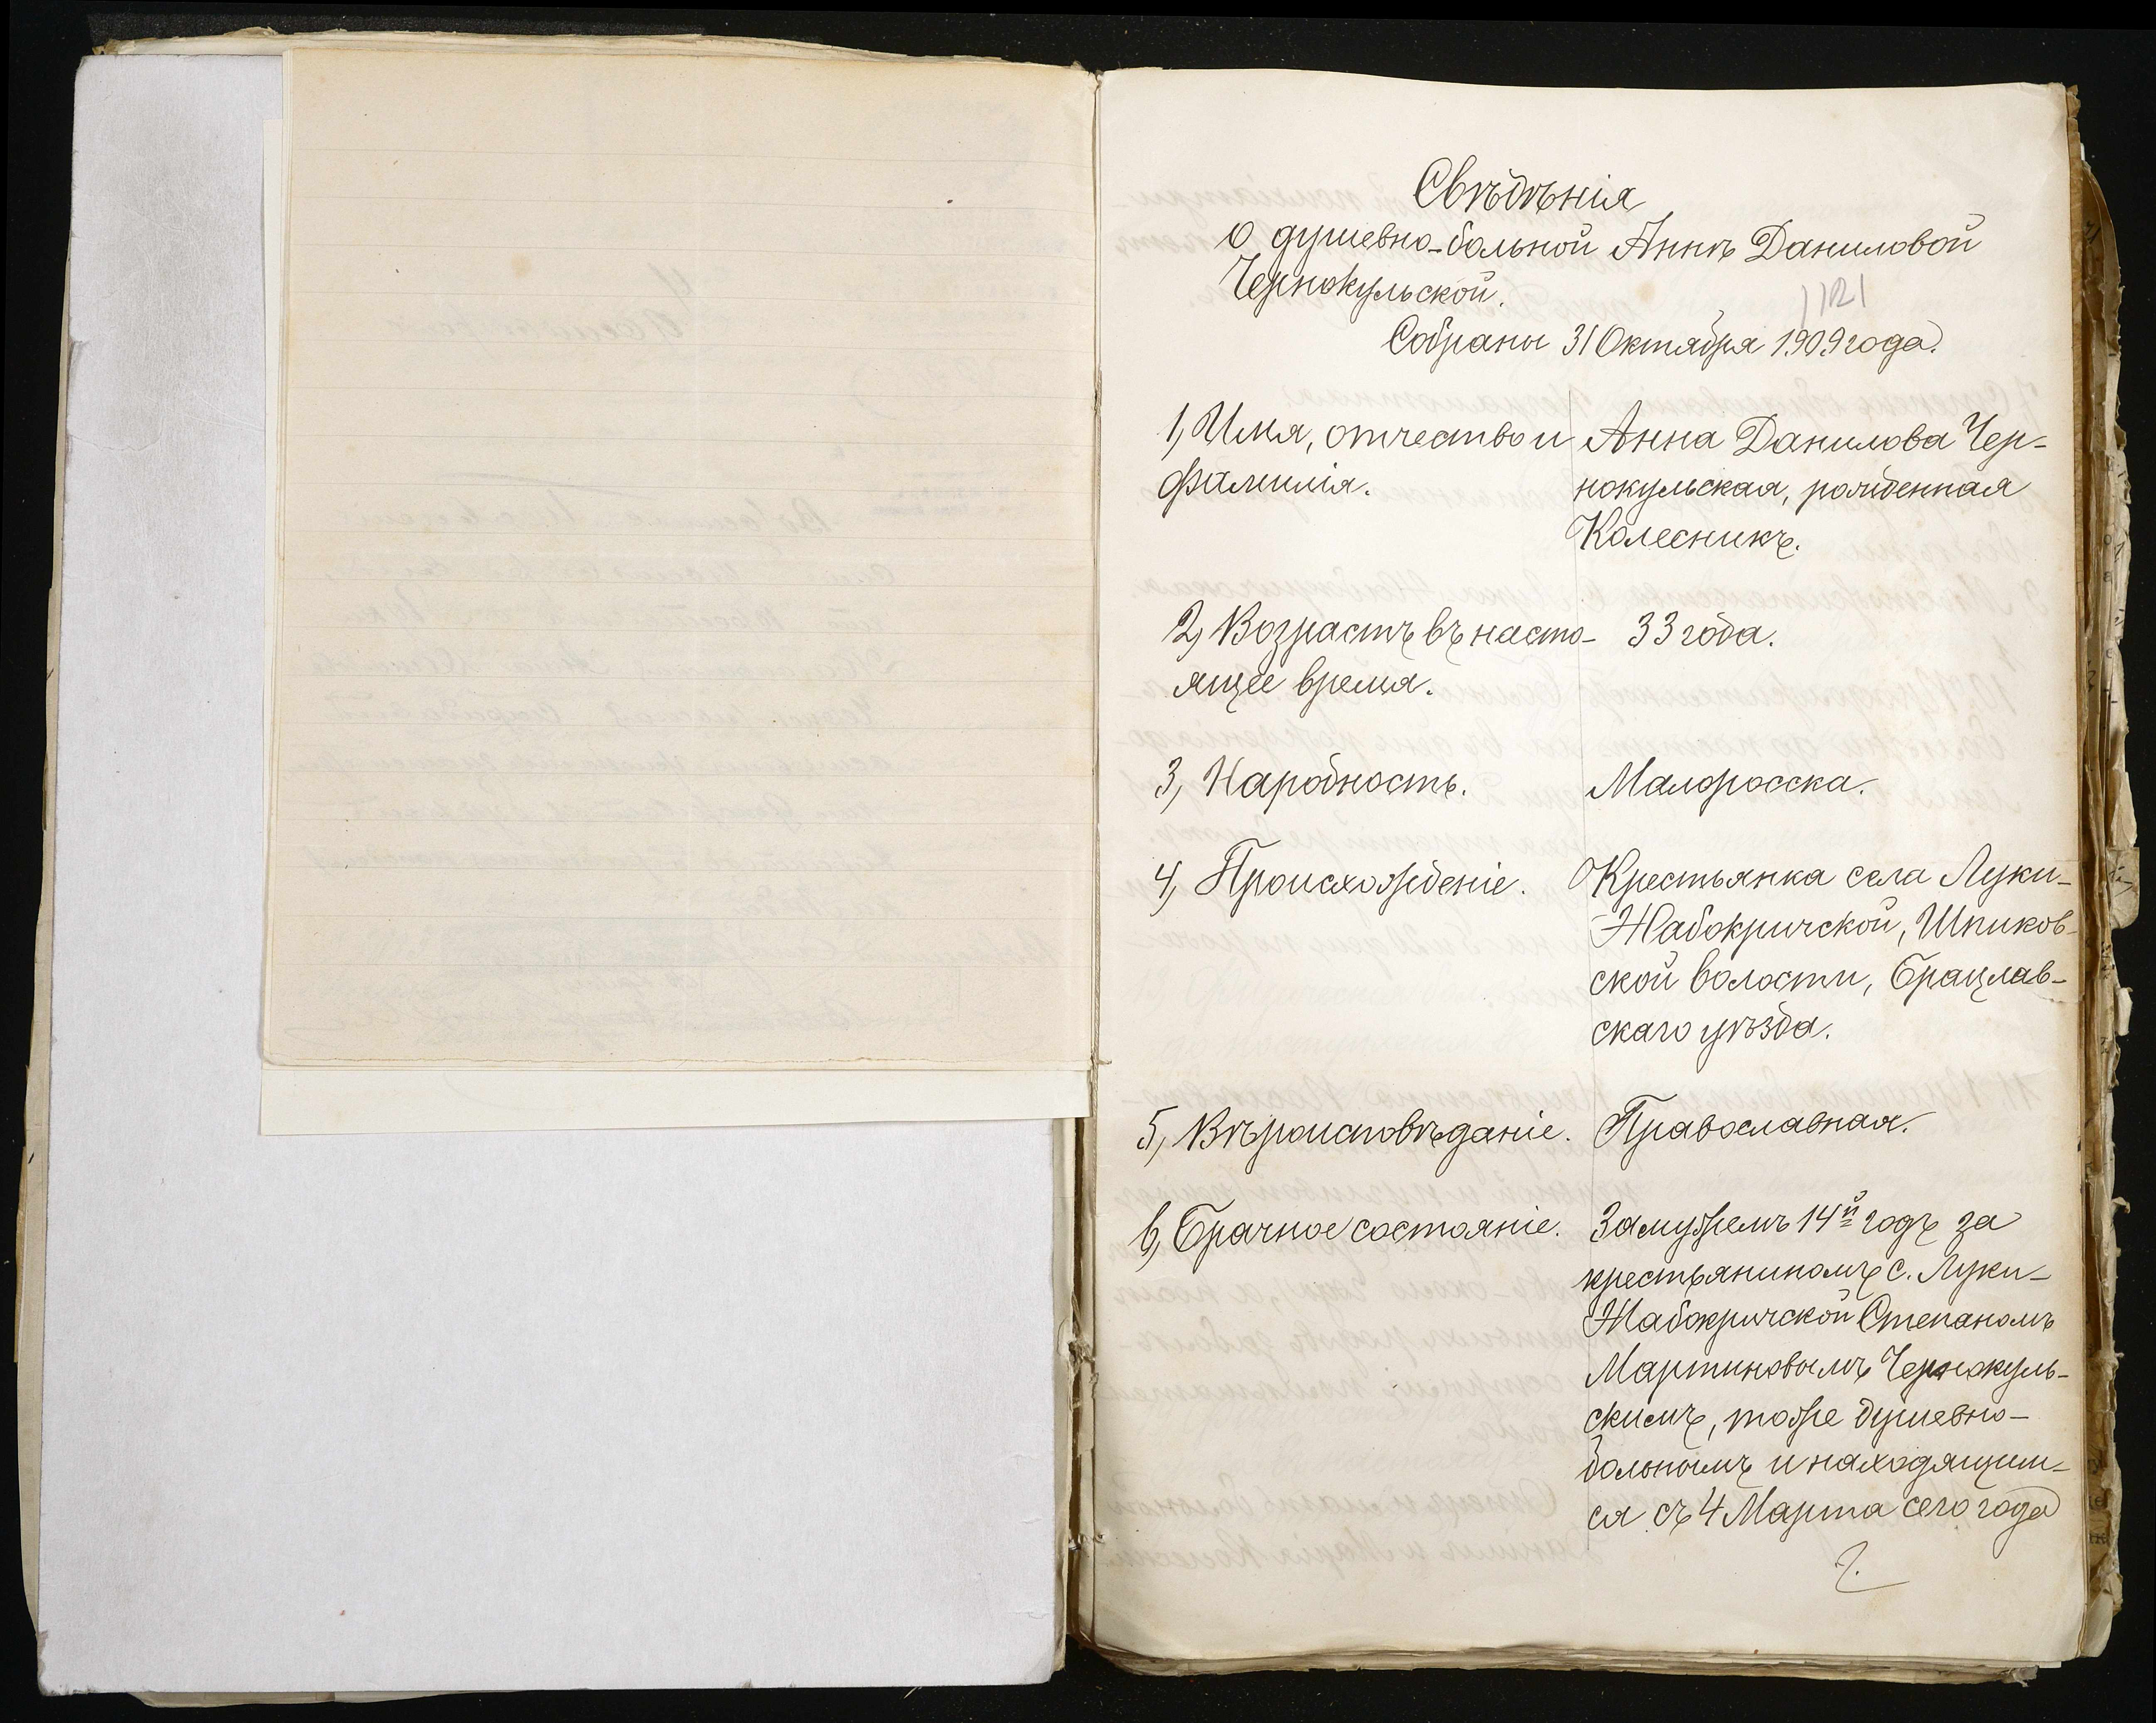 Свѣдѣнія
О душевно-больной Аннѣ Даниловой
Чернокульской.
Собраны 31 Октября 1909 года.
1, Имя, отчество и
фамилія.
Анна Данилова Чер-
нокульская, рожденная
Колесникъ.
2, Возрастъ въ насто-
ящее время.
33 года.
3, Народность.
Малоросска.
4, Происхожденіе.
Крестьянка села Луки-
Жабокричской, Шпиков-
ской волости, Брацлав-
скаго уѣзда.
5, Вѣроисповѣданіе.
Православная.
6, Брачное состояніе.
Замужемъ 14й годъ за
крестьяниномъ с. Луки-
Жабокричской Степаномъ
Мартиновымъ Чернокуль-
скимъ, тоже душевно-
больнымъ и находящим-
ся съ 4 Марта сего года